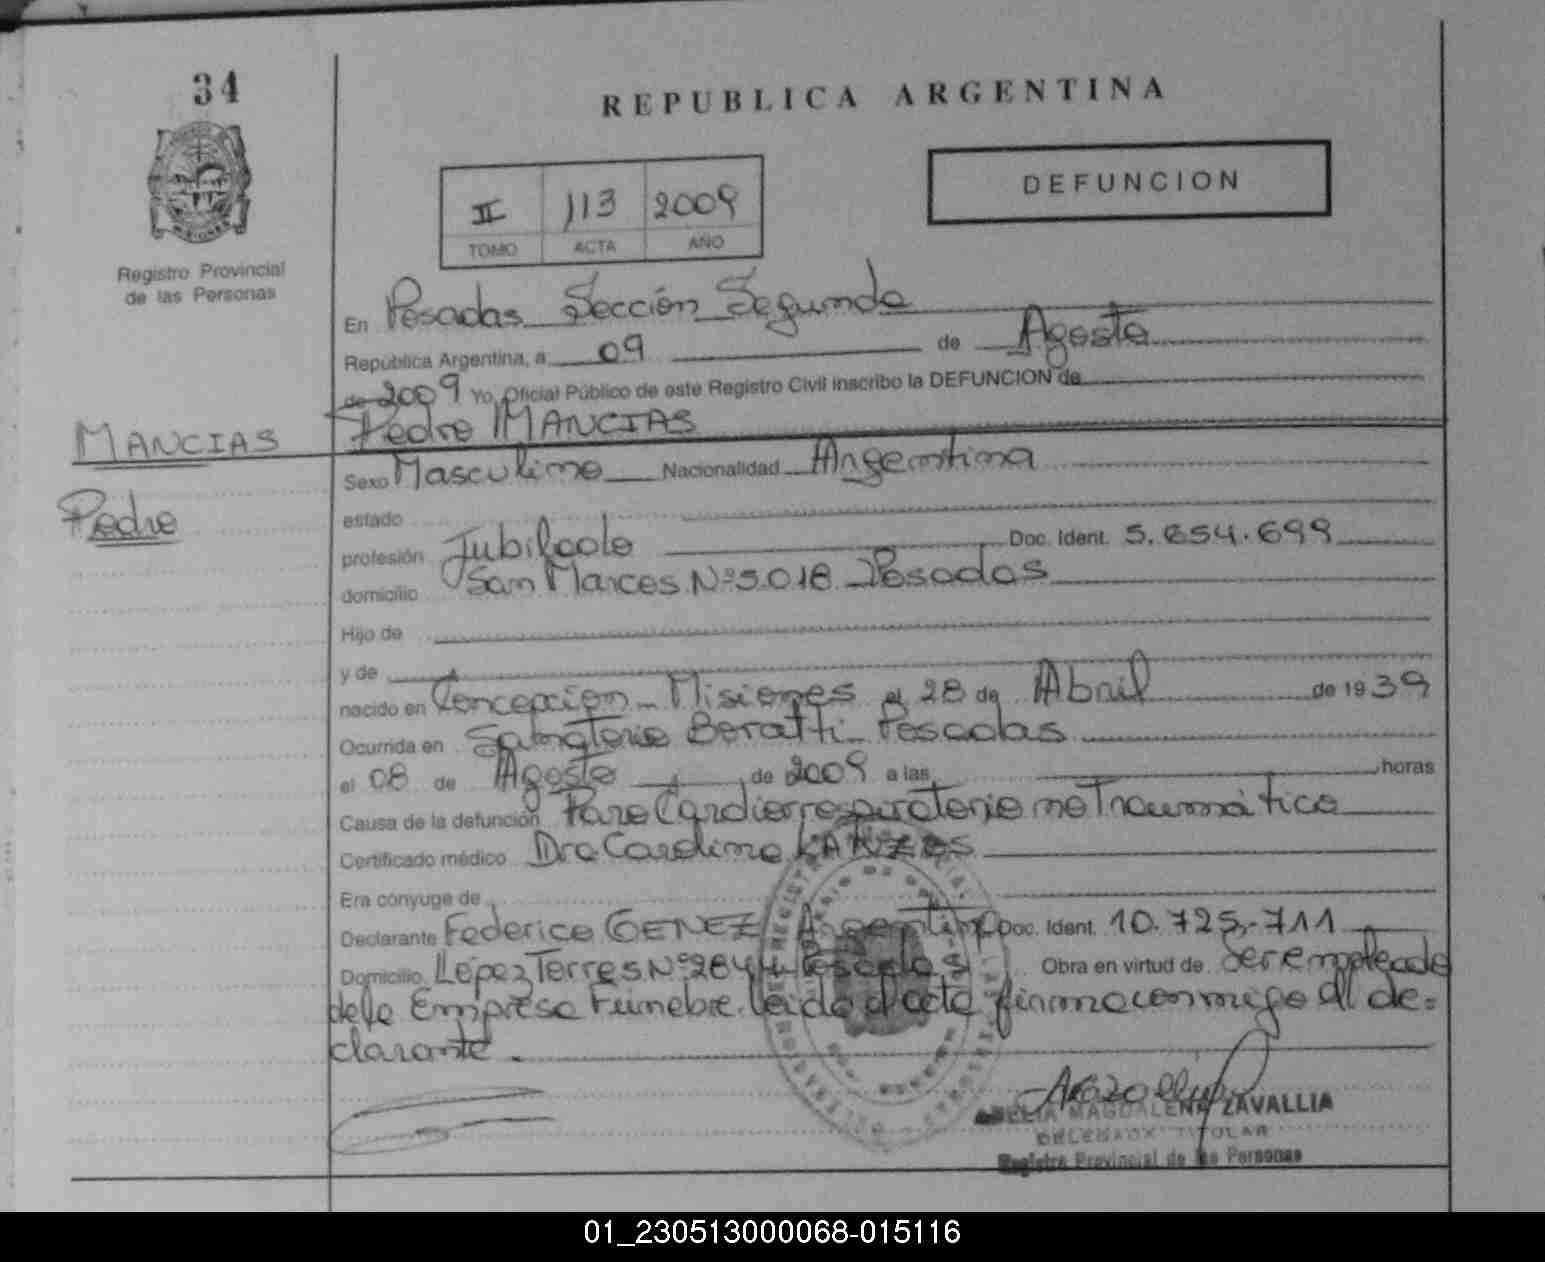 34
REPUBLICA ARGENTINA
DEFUNCION
II 113 2009
TOMO ACTA AÑO
Registro Provincial
de las Personas
En Posadas Sección Segunda
República Argentina, a 09 de Agosto
de 2009 Yo, Oficial Público de este Registro Civil inscribo la DEFUNCION de
MANCIAS
Pedro MANCIAS
Pedro
Sexo Masculino Nacionalidad Argentina
estado
profesión Jubilado Doc. Ident. 5.654.699
domicilio San Marcos Nº 5.018 Posadas
Hijo de
y de
nacido en Concepción - Misiones el 28 de Abril de 1939
Ocurrida en Sanatorio Boratti - Posadas
el 08 de Agosto de 2009 a las horas
Causa de la defunción Paro Cardiorrespiratorio no Traumático
Certificado médico Dra Carolina
Era cónyuge de
Declarante Federico GENEZ Argentino Doc. Ident. 10.725.711
Domicilio López Torres Nº 2844 Posadas Obra en virtud de Ser empleado
de la Empresa Fúnebre. leida el acta firma conmigo el de=
clarante.
MAGDALENA ZAVALLIA
DELEGADA TITULAR
Registro Provincial de las Personas
01_230513000068-015116